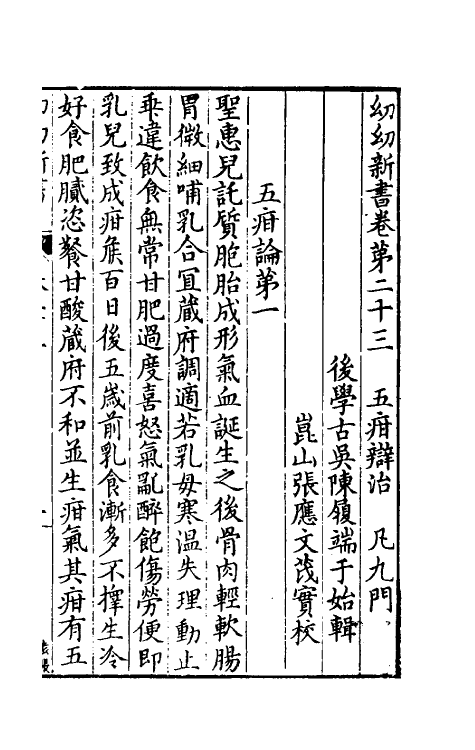 幼幼新書卷第二十三　五疳辯治　凡九門
後學古吳陳履端于始輯
崑山張應文茂實校
五疳論第一
聖惠兒託質胞胎成形氣血誕生之後骨肉輕軟腸
胃微細哺乳合宜藏府調適若乳母寒温失理動止
乖違飲食無常甘肥過度喜怒氣亂醉飽傷勞便即
乳兒致成疳候百日後五歲前乳食漸多不擇生冷
好食肥膩恣餐甘酸藏府不和並生疳氣其疳有五
幼幼新書